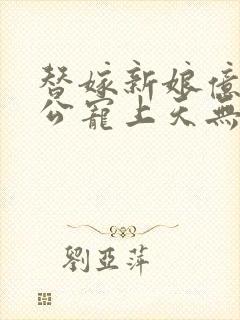 替嫁新娘億
公寵上天無
劉亞萍